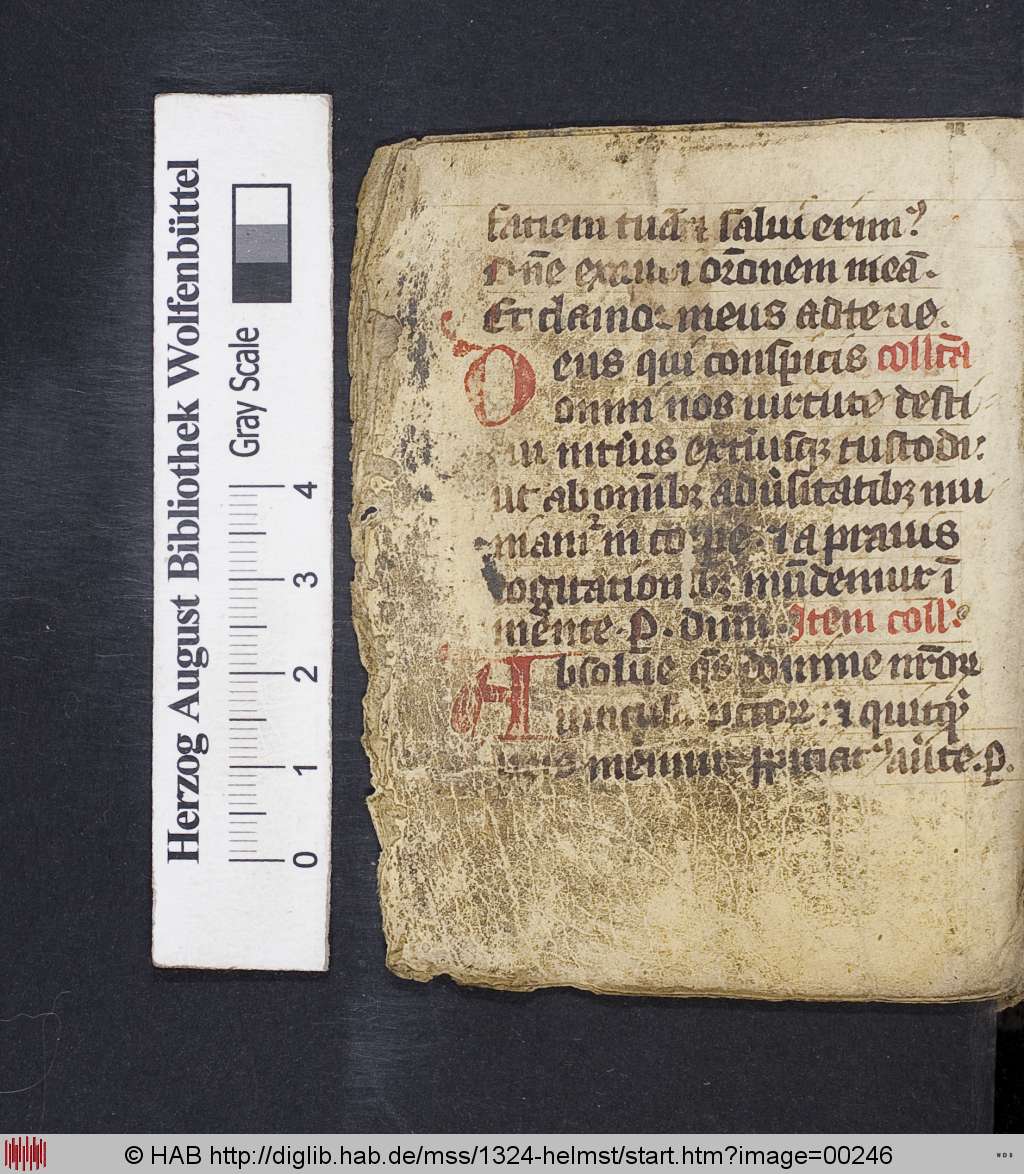 Herzog August Bibliothek Wolfenbüttel
Gray Scale
0 1 2 3 4
faciem tuā ⁊ salui erimꝰ
Dn̄e exaudi or̄onem meā.
Et clamor meus ad te ue.
Deus qui conspicis collc̄a
omni nos uirtute desti
tui int̄ius ext̄iusqꝫ custodi:
ut ab om̄ibꝫ adu̾sitatibꝫ mu
maniꝰ in coꝛpe. ⁊ a prauis
cogitationibꝫ mūdemur ī
mente. P. dūm. Item coll̄
Absolue qs̄ domine nr̄oꝝ
uincula pctoꝝ: ⁊ quicqͥd
meremur ꝓpiciatꝰ aūte. P.
© HAB http://diglib.hab.de/mss/1324-helmst/start.htm?image=00246
WDB